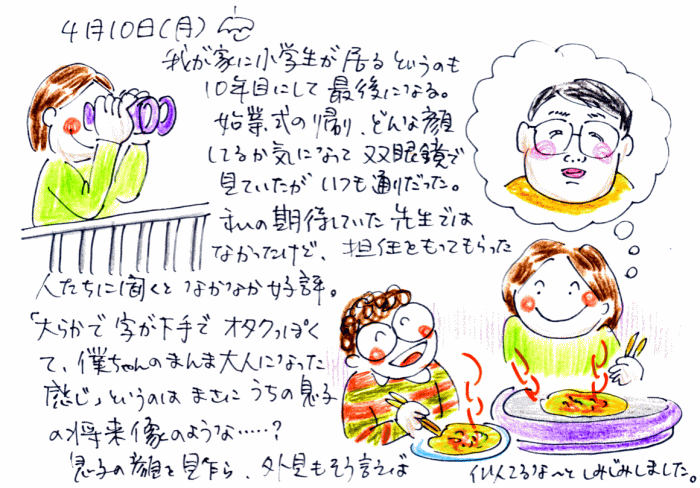 4月10日(月)
我が家に小学生が居るというのも
10年目にして最後になる。
始業式の帰り、どんな顔
してるか気になって双眼鏡で
見ていたがいつも通りだった。
私の期待していた先生では
なかったけど、担任をもってもらった
人たちに聞くとなかなか好評。
「大らかで字が下手でオタクっぽく
て、僕ちゃんのまんま大人になった
感じ」というのはまさにうちの息子
の将来像のような……?
息子の顔を見乍ら、外見もそう言えば
似てるな〜としみじみしました。